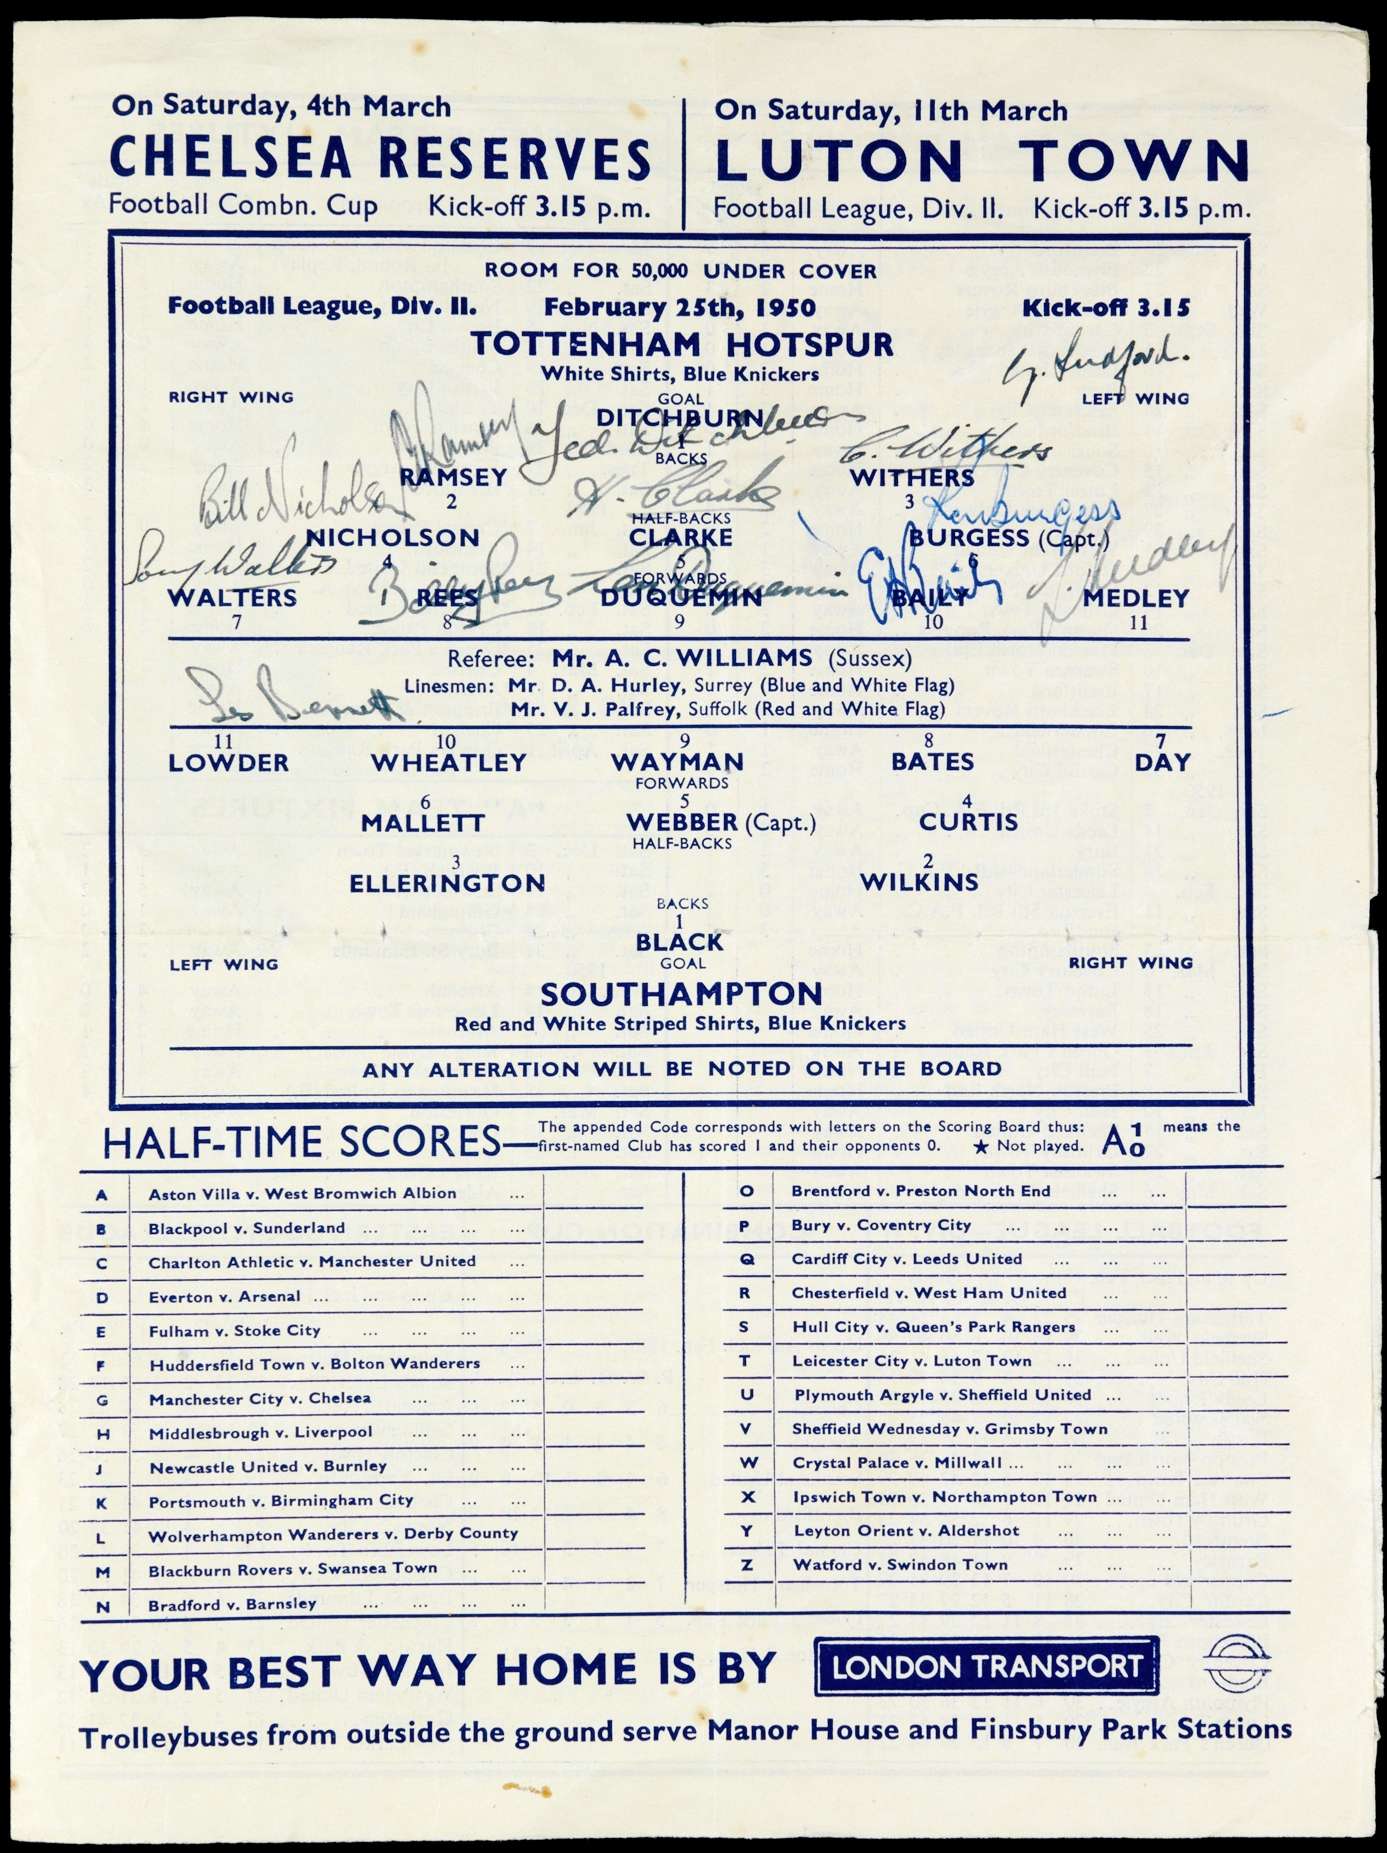 On Saturday, 4th March
CHELSEA RESERVES
Football Combn. Cup Kick-off 3.15 p.m.
On Saturday, 11th March
LUTON TOWN
Football League, Div. II. Kick-off 3.15 p.m.
ROOM FOR 50,000 UNDER COVER
Football League, Div. II. February 25th, 1950 Kick-off 3.15
TOTTENHAM HOTSPUR
White Shirts, Blue Knickers
G. Ludford.
RIGHT WING GOAL LEFT WING
DITCHBURN
1
A Ramsey Ted. Ditchburn
BACKS
C. Withers
RAMSEY WITHERS
2 3
Bill Nicholson H. Clarke Ron Burgess
HALF-BACKS
NICHOLSON CLARKE BURGESS (Capt.)
4 5 6
Sonny Walters Billy Rees Len Duquemin E F Baily L. Medley
FORWARDS
WALTERS REES DUQUEMIN BAILY MEDLEY
7 8 9 10 11
Referee: Mr. A. C. WILLIAMS (Sussex)
Linesmen: Mr. D. A. Hurley, Surrey (Blue and White Flag)
Mr. V. J. Palfrey, Suffolk (Red and White Flag)
Les Bennett
11 10 9 8 7
LOWDER WHEATLEY WAYMAN BATES DAY
FORWARDS
6 5 4
MALLETT WEBBER (Capt.) CURTIS
HALF-BACKS
3 2
ELLERINGTON WILKINS
BACKS
1
BLACK
LEFT WING GOAL RIGHT WING
SOUTHAMPTON
Red and White Striped Shirts, Blue Knickers
ANY ALTERATION WILL BE NOTED ON THE BOARD
HALF-TIME SCORES—The appended Code corresponds with letters on the Scoring Board thus: A 1 0 means the
first-named Club has scored 1 and their opponents 0. ★ Not played.
A Aston Villa v. West Bromwich Albion ...
B Blackpool v. Sunderland ... ... ... ...
C Charlton Athletic v. Manchester United ...
D Everton v. Arsenal ... ... ... ... ...
E Fulham v. Stoke City ... ... ... ...
F Huddersfield Town v. Bolton Wanderers ...
G Manchester City v. Chelsea ... ... ...
H Middlesbrough v. Liverpool ... ... ...
J Newcastle United v. Burnley ... ... ...
K Portsmouth v. Birmingham City ... ...
L Wolverhampton Wanderers v. Derby County
M Blackburn Rovers v. Swansea Town ... ...
N Bradford v. Barnsley ... ... ... ...
O Brentford v. Preston North End ... ...
P Bury v. Coventry City ... ... ... ...
Q Cardiff City v. Leeds United ... ... ...
R Chesterfield v. West Ham United ... ...
S Hull City v. Queen's Park Rangers ... ...
T Leicester City v. Luton Town ... ... ...
U Plymouth Argyle v. Sheffield United ... ...
V Sheffield Wednesday v. Grimsby Town ...
W Crystal Palace v. Millwall ... ... ... ...
X Ipswich Town v. Northampton Town ... ...
Y Leyton Orient v. Aldershot ... ... ...
Z Watford v. Swindon Town ... ... ...
YOUR BEST WAY HOME IS BY LONDON TRANSPORT
Trolleybuses from outside the ground serve Manor House and Finsbury Park Stations